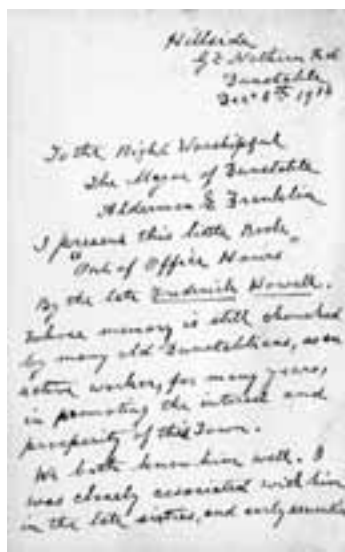 Hillside
Gt Northern Rd
Dunstable
Decr 6th
To the Right Worshipful
The Mayor of Dunstable
Alderman E Franklin
I present this little Book
"Out of Office Hours"
By the late Frederick Howell.
whose memory is still cherished
by many old Dunstablians, as an
active worker, for many years,
in promoting the interest and
prosperity of this Town.
We both knew him well. I
was closely associated with him
in the late sixties, and early seventies